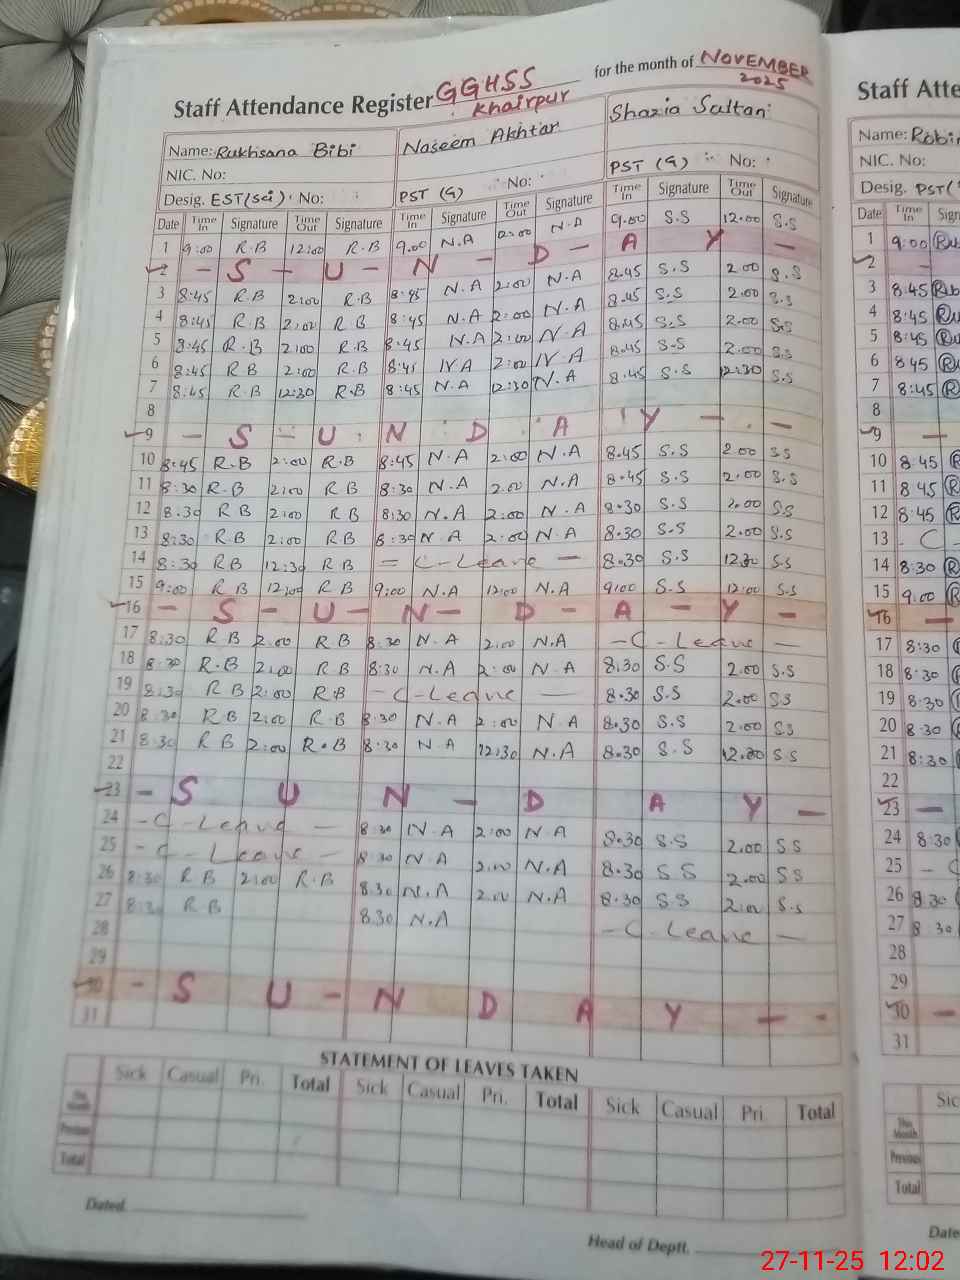 Staff Attendance Register GGHSS Khairpur for the month of NOVEMBER 2025
Name: Rukhsana Bibi Naseem Akhtar Shazia Sultan
NIC. No:
Desig. EST(Sci) No: PST (G) No: PST (G) No:
Date Time In Signature Time Out Signature Time In Signature Time Out Signature Time In Signature Time Out Signature
1 9:00 R.B 12:00 R.B 9.00 N.A 12:00 N.A 9.00 S.S 12.00 S.S
2 - S - U - N - D - A Y -
3 8:45 R.B 2:00 R.B 8:45 N.A 2:00 N.A 8.45 S.S 2.00 S.S
4 8:45 R.B 2:00 R B 8:45 N.A 2:00 N.A 8.45 S.S 2.00 S.S
5 8:45 R.B 2:00 R.B 8:45 N.A 2:00 N.A 8.45 S.S 2.00 S.S
6 8:45 R B 2:00 R.B 8:45 N A 2:00 N.A 8.45 S.S 2.00 S.S
7 8:45 R.B 12:30 R.B 8:45 N.A 12:30 N.A 8.45 S.S 12:30 S.S
8
9 - S - U N D A Y - -
10 8:45 R.B 2:00 R.B 8:45 N.A 2:00 N.A 8.45 S.S 2.00 S.S
11 8:30 R.B 2:00 R B 8:30 N.A 2.00 N.A 8.45 S.S 2.00 S.S
12 8:30 R.B 2:00 R B 8:30 N.A 2:00 N.A 8.30 S.S 2.00 S.S
13 8:30 R.B 2:00 R B 8:30 N.A 2:00 N.A 8.30 S.S 2.00 S.S
14 8:30 R B 12:30 R B = C-Leave - 8.30 S.S 12.30 S.S
15 9:00 R B 12:00 R B 9:00 N.A 12:00 N.A 9:00 S.S 12:00 S.S
16 - S - U - N - D - A - Y -
17 8:30 R B 2:00 R B 8:30 N.A 2:00 N.A - C - Leave -
18 8:30 R.B 2:00 R B 8:30 N.A 2:00 N.A 8.30 S.S 2.00 S.S
19 8:30 R B 2:00 R.B - C-Leave - 8.30 S.S 2.00 S.S
20 8:30 R.B 2:00 R.B 8:30 N.A 2:00 N.A 8.30 S.S 2.00 S.S
21 8:30 R B 2:00 R.B 8:30 N.A 12:30 N.A 8.30 S.S 12.30 S.S
22
23 - S U N - D A Y -
24 - C - Leave - 8:30 N.A 2:00 N.A 8.30 S.S 2.00 S S
25 - C - Leave - 8:30 N.A 2:00 N.A 8.30 S S 2.00 S S
26 8:30 R B 2:00 R.B 8.30 N.A 2:00 N.A 8.30 S S 2.00 S.S
27 8:30 R B 8.30 N.A - C - Leave -
28
29
30 - S U - N D A Y - -
31
STATEMENT OF LEAVES TAKEN
Sick Casual Pri. Total Sick Casual Pri. Total Sick Casual Pri. Total
This Month
Previous
Total
Dated
Head of Deptt.
Staff Atte
Name: Robi
NIC. No:
Desig. PST(
Date Time In Sign
1 9:00
2 -
3 8:45
4 8:45
5 8:45
6 8:45
7 8:45
8
9 -
10 8:45
11 8 45
12 8:45
13 - C -
14 8:30
15 9:00
16 -
17 8:30
18 8:30
19 8:30
20 8:30
21 8:30
22
23 -
24 8:30
25 - C
26 8.30
27 8:30
28
29
30 -
31
Sic
This Month
Previous
Total
Date
27-11-25 12:02